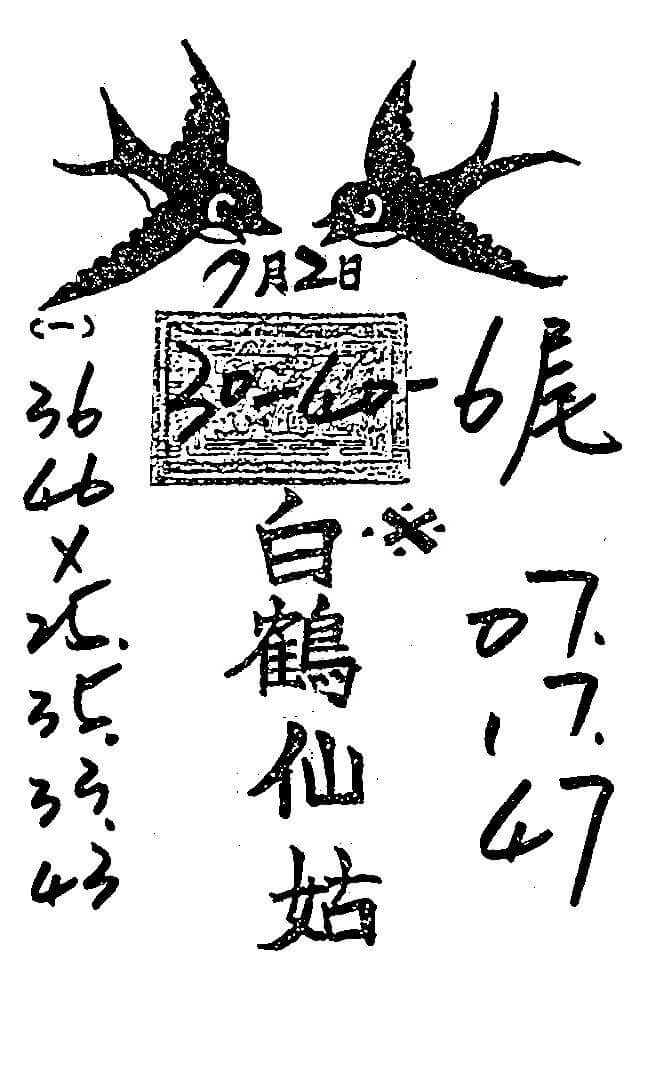 7月2日
30-40-6尾
(一)
36
46
X
25.
35.
33.
43
白鶴仙姑
07.
17.
47